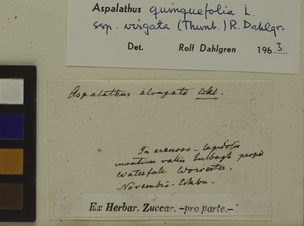 Aspalathus quinquefolia L.
ssp. virgata (Thunb.) R. Dahlgr.
Det. Rolf Dahlgren 1963
Aspalathus elongata
In arenoso-lapidosis
montium vallis Tulbagh prope
Waterfall Worcester.
Novembri. Eckln.
Ex Herbar. Zuccar. -pro parte.-